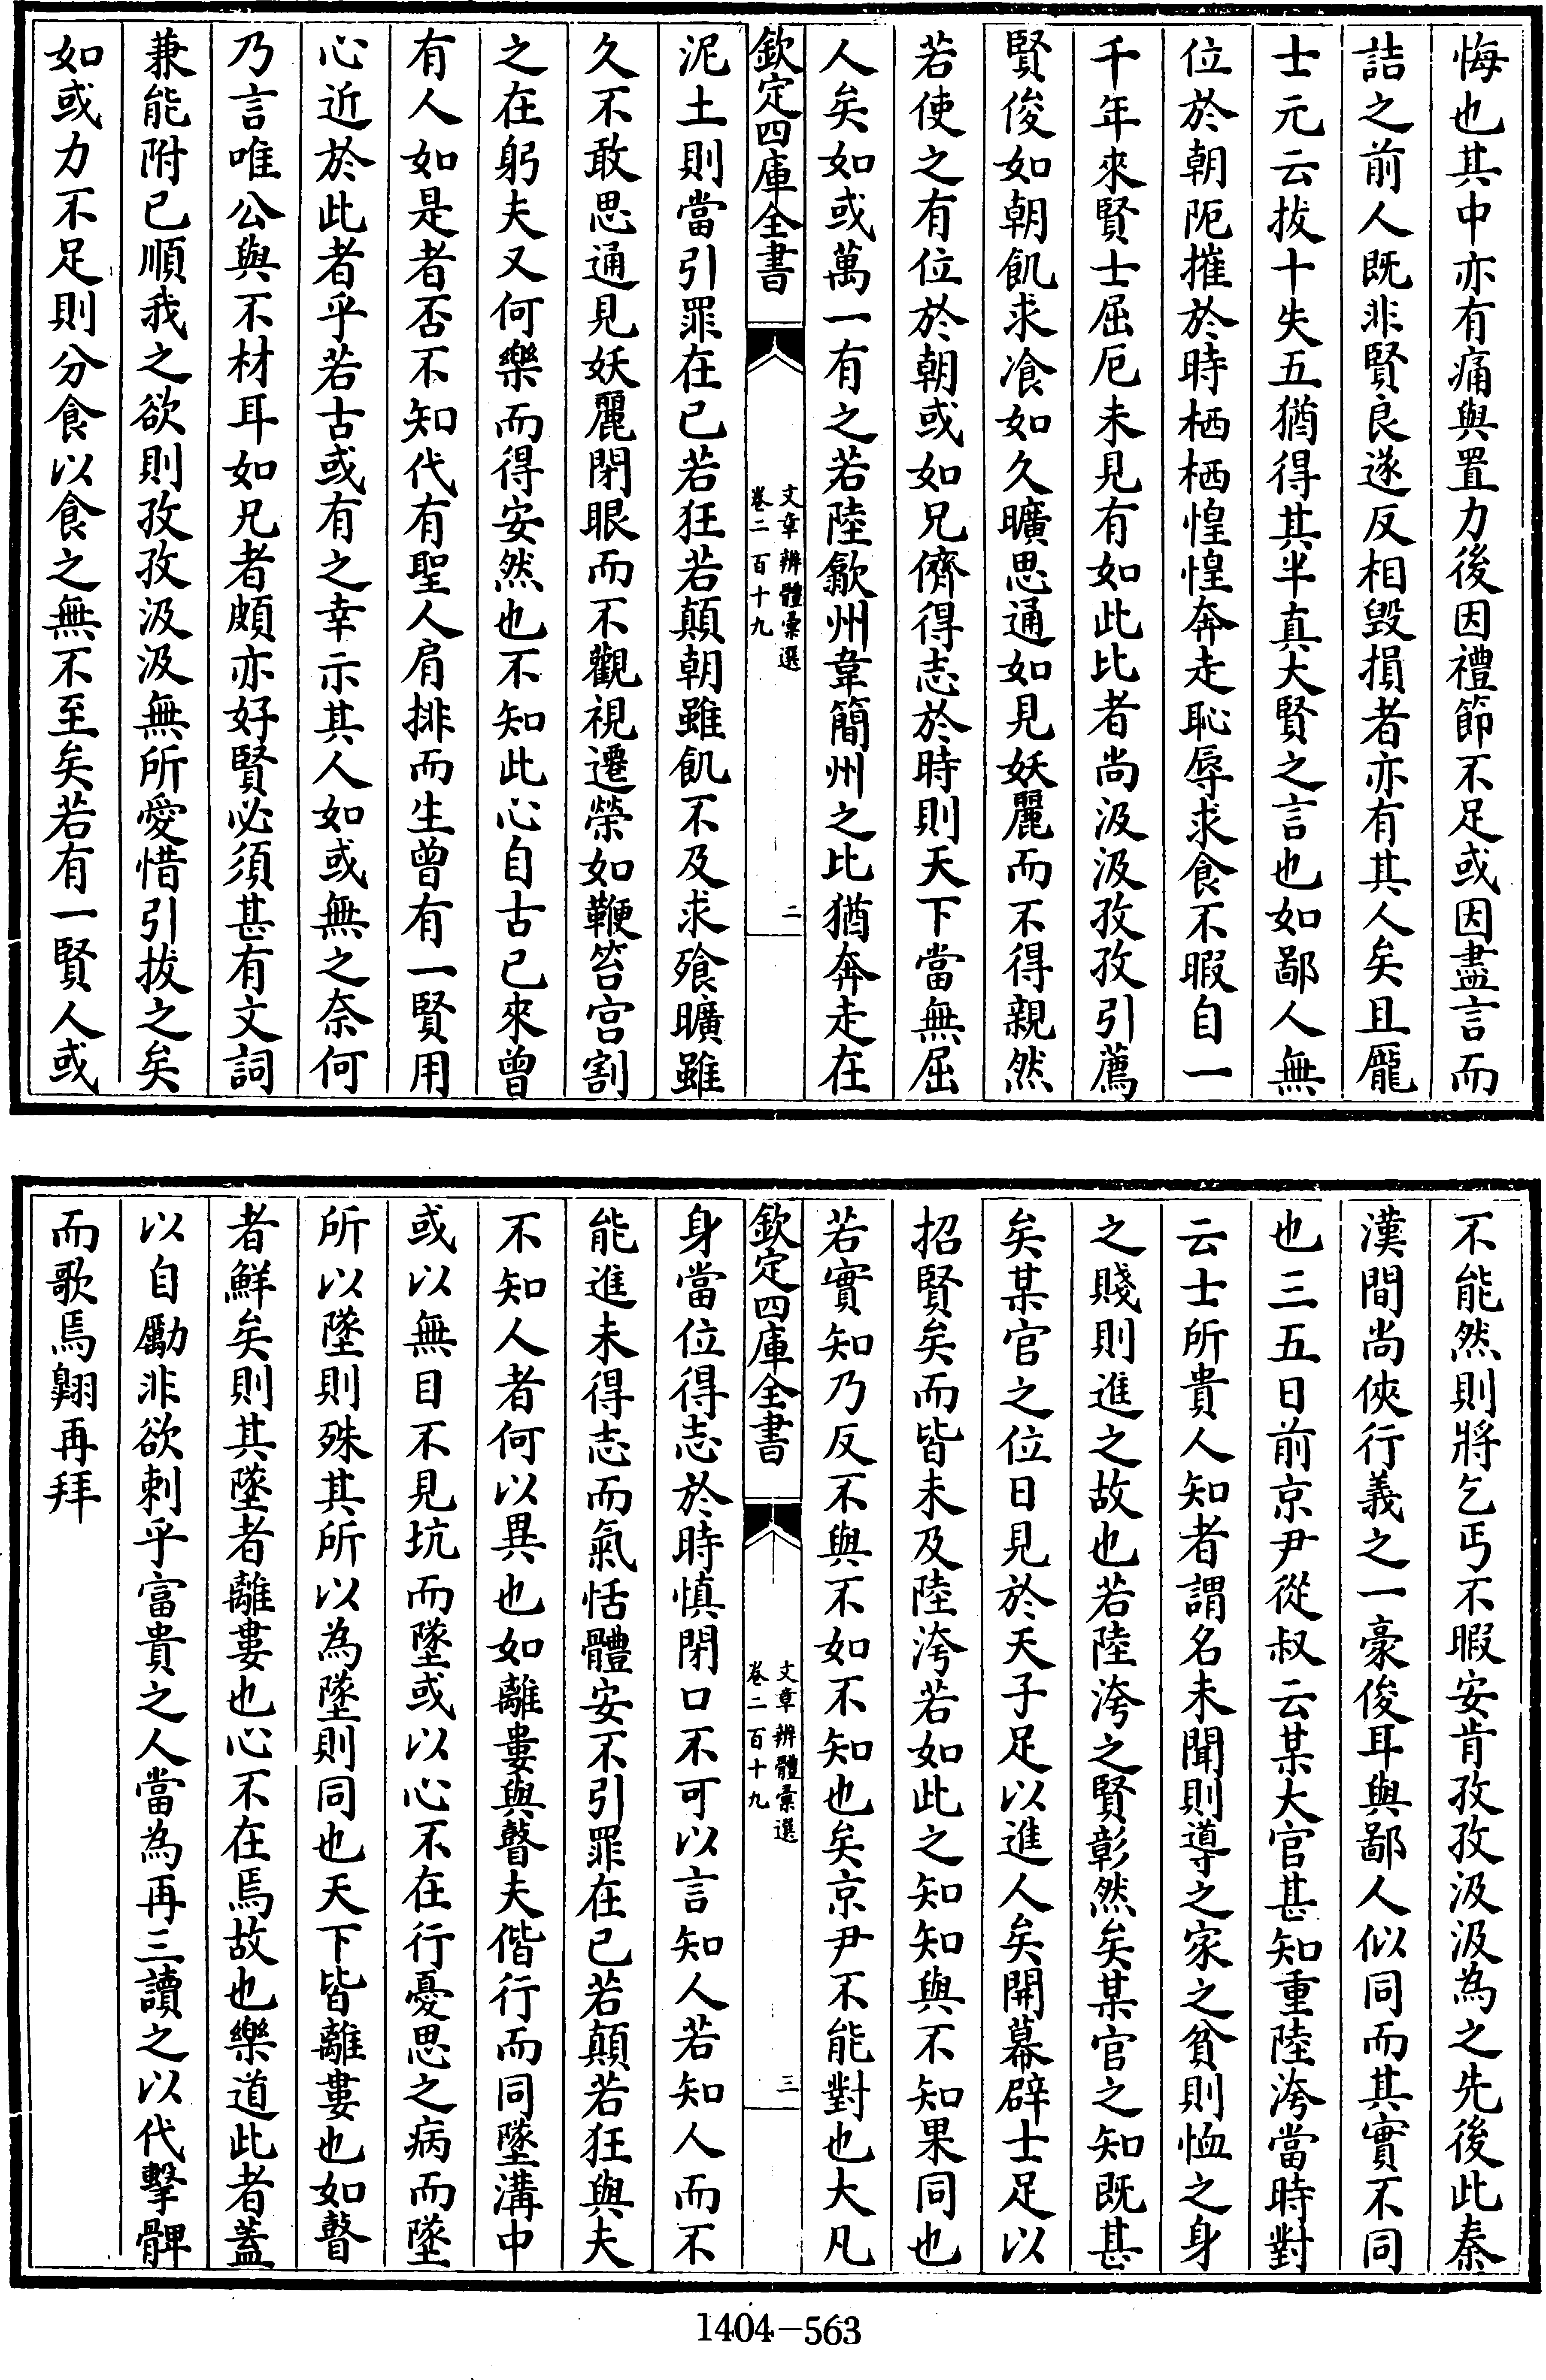 悔也其中亦有痛與置力後因禮節不足或因盡言而
詰之前人既非賢良遂反相毀損者亦有其人矣且龎
士元云拔十失五猶得其半真大賢之言也如鄙人無
位於朝阨摧於時栖栖惶惶奔走恥辱求食不暇自一
千年來賢士屈厄未見有如此比者尚汲汲孜孜引薦
賢俊如朝飢求飡如久曠思通如見妖麗而不得親然
若使之有位於朝或如兄儕得志於時則天下當無屈
人矣如或萬一有之若陸歙州韋簡州之比猶奔走在
欽定四庫全書
文章辨體彙選
卷二百十九
二
泥土則當引罪在已若狂若顛朝雖飢不及求飱曠雖
久不敢思通見妖麗閉眼而不觀視遷榮如鞭笞宫割
之在躬夫又何樂而得安然也不知此心自古已來曾
有人如是者否不知代有聖人肩排而生曾有一賢用
心近於此者乎若古或有之幸示其人如或無之奈何
乃言唯公與不材耳如兄者頗亦好賢必須甚有文詞
兼能附已順我之欲則孜孜汲汲無所愛惜引拔之矣
如或力不足則分食以食之無不至矣若有一賢人或
不能然則將乞丐不暇安肯孜孜汲汲為之先後此秦
漢間尚俠行義之一豪俊耳與鄙人似同而其實不同
也三五日前京尹從叔云某大官甚知重陸洿當時對
云士所貴人知者謂名未聞則導之家之貧則恤之身
之賤則進之故也若陸洿之賢彰然矣某官之知既甚
矣某官之位日見於天子足以進人矣開幕辟士足以
招賢矣而皆未及陸洿若如此之知知與不知果同也
若實知乃反不與不如不知也矣京尹不能對也大凡
欽定四庫全書
文章辨體彙選
卷二百十九
三
身當位得志於時慎閉口不可以言知人若知人而不
能進未得志而氣恬體安不引罪在已若顛若狂與夫
不知人者何以異也如離婁與瞽夫偕行而同墜溝中
或以無目不見坑而墜或以心不在行憂思之病而墜
所以墜則殊其所以為墜則同也天下皆離婁也如瞽
者鮮矣則其墜者離婁也心不在焉故也樂道此者蓋
以自勵非欲刺乎富貴之人當為再三讀之以代擊髀
而歌焉翺再拜
1404-563